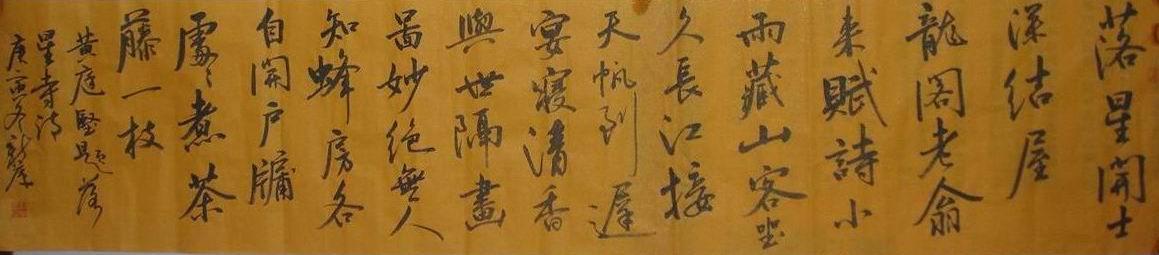 落星開士
深結屋
龍閣老翁
來賦詩小
雨藏山客坐
久長江接
天帆到遲
宴寢清香
與世隔畫
啚妙絕無人
知蜂房各
自開戶牖
處々煮茶
藤一枝
黃庭堅題落
星寺詩
庚寅冬